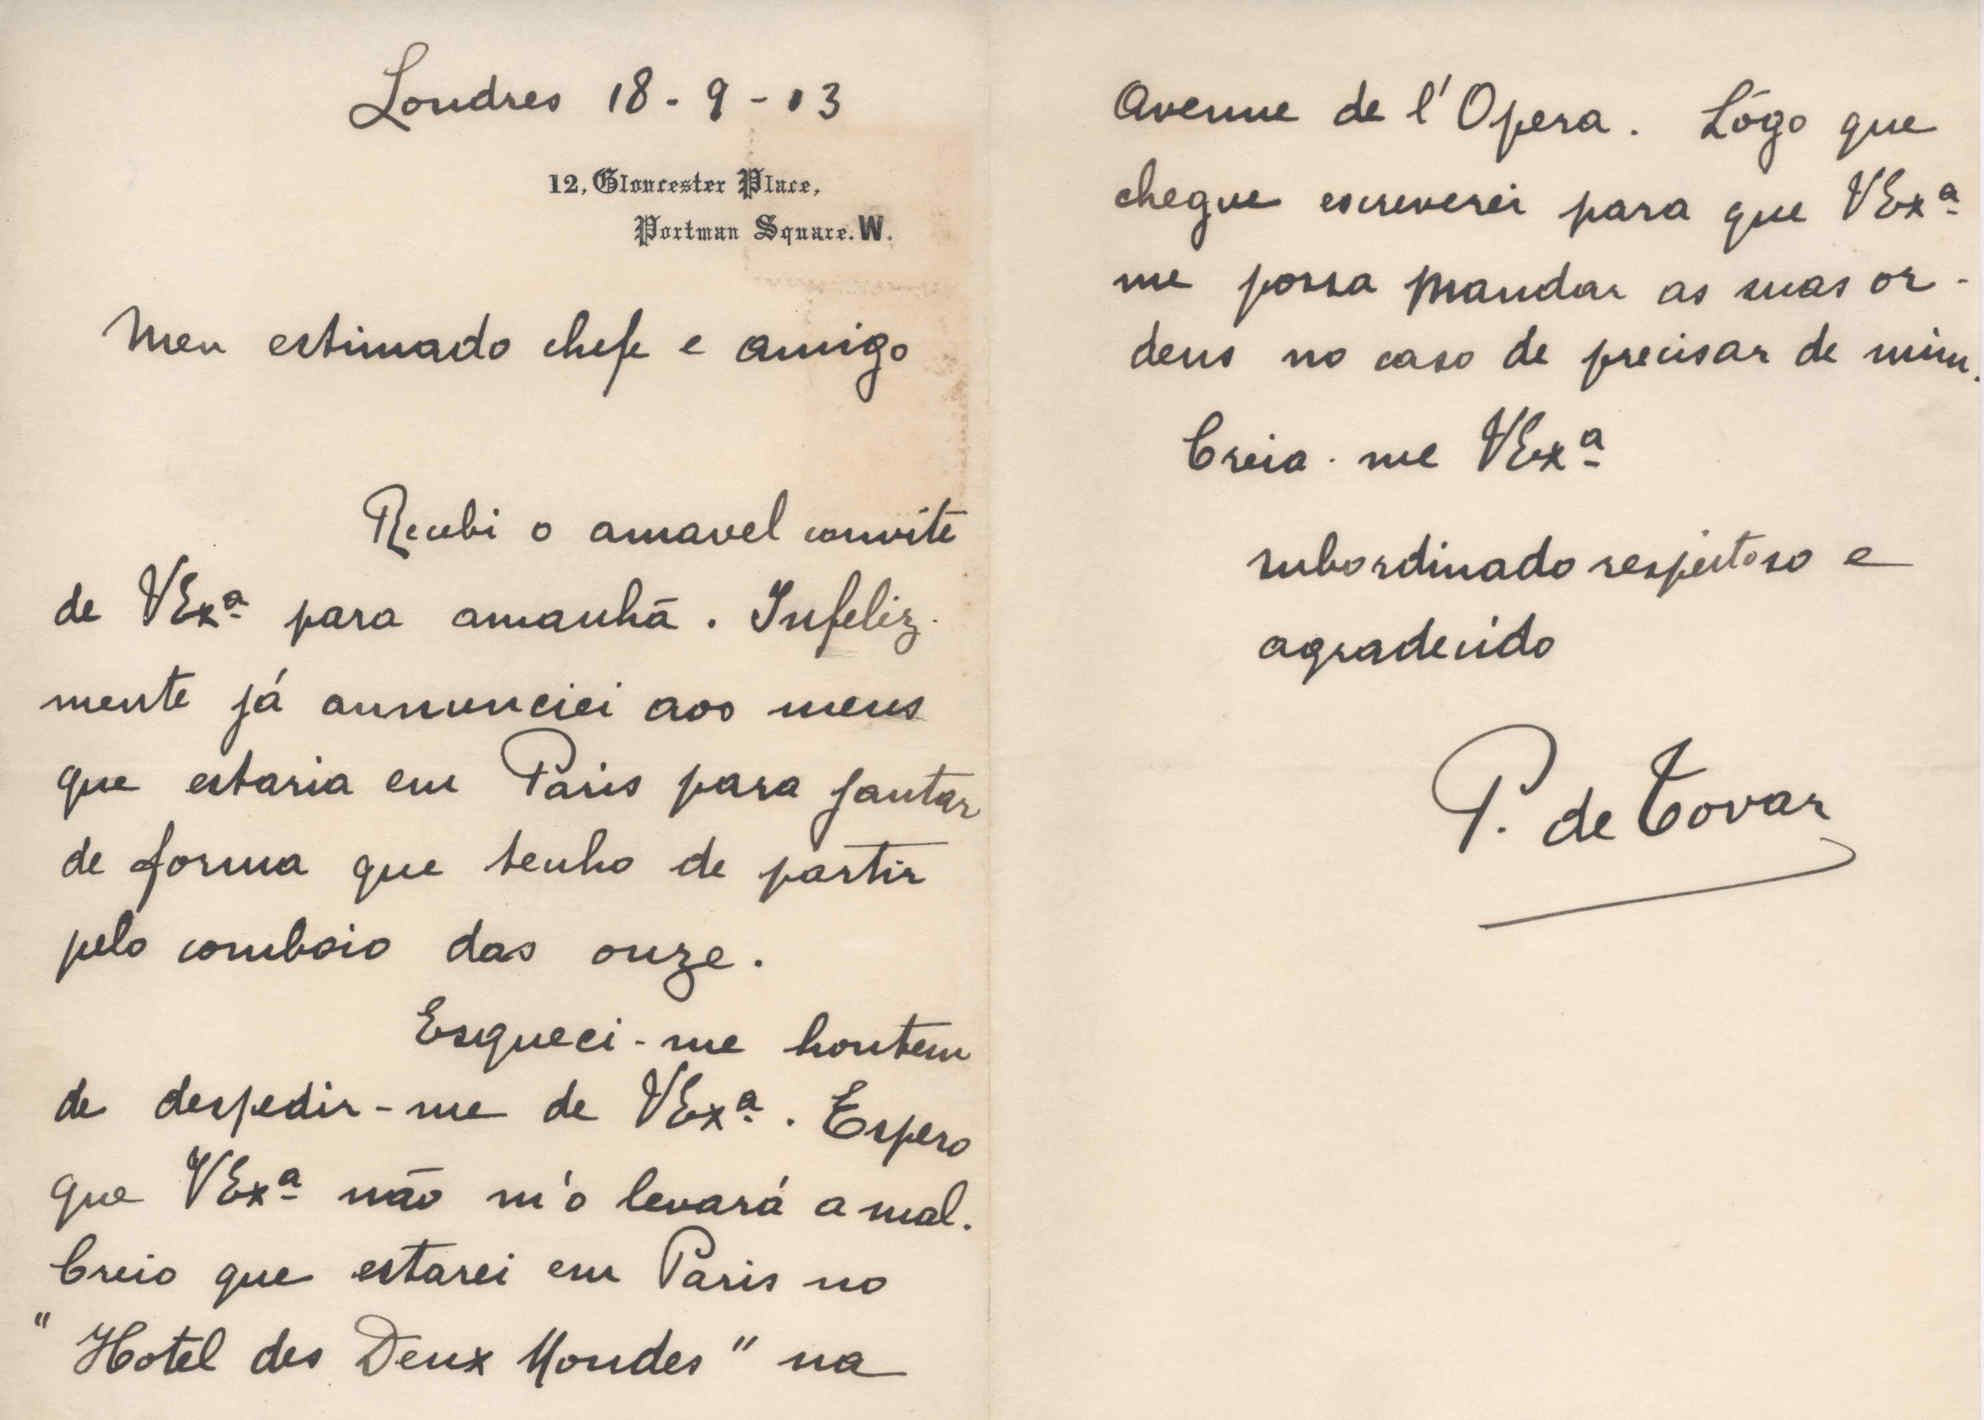 Londres 18-9-13
12, Gloucester Place,
Portman Square. W.
Meu estimado chefe e amigo
Recebi o amavel convite
de VExª para amanhã. Infeliz-
mente já annunciei aos meus
que estaria em Paris para jantar
de forma que tenho de partir
pelo comboio das onze.
Esqueci-me hontem
de despedir-me de VExª. Espero
que VExª não m'o levará a mal.
Creio que estarei em Paris no
"Hotel des Deux Mondes" na
Avenue de l'Opera. Lógo que
chegue escreverei para que VExª
me possa mandar as suas or-
dens no caso de precisar de mim.
Creia-me VExª
subordinado respeitoso e
agradecido
P. de Tovar